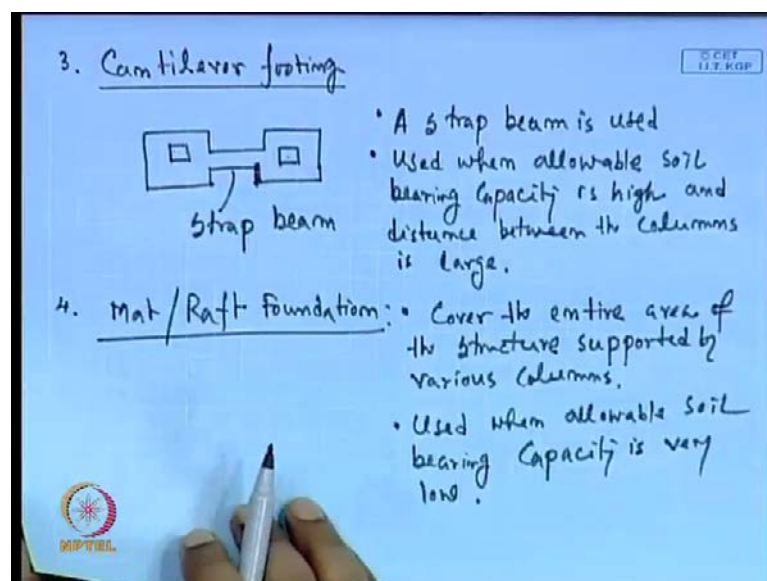 3. Cantilever footing
© CET
I.I.T. KGP
• A strap beam is used
• Used when allowable soil
bearing capacity is high and
distance between the columns
is large.
strap beam
4. Mat/Raft Foundation: • Cover the entire area of
the structure supported by
various columns.
• Used when allowable soil
bearing capacity is very
low.
NPTEL